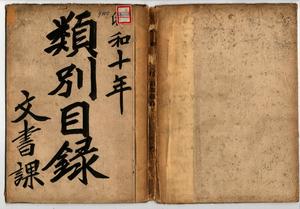 昭和十年
類別目録
文書課